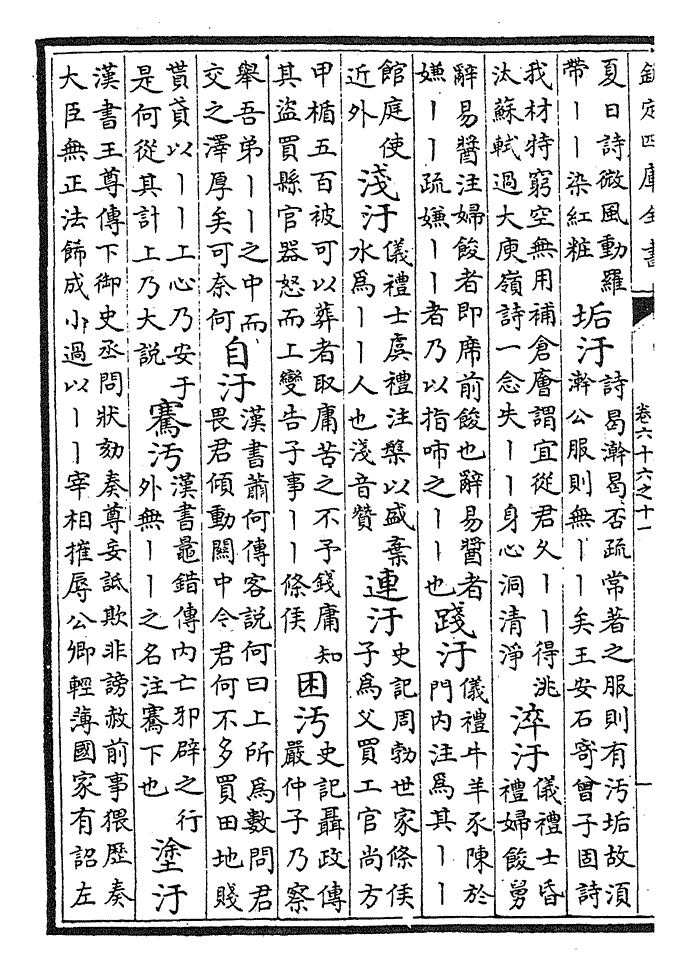 欽定四庫全書 卷六十六之十一
夏日詩微風動羅
帶丨丨染紅粧
垢汙
詩曷澣曷否疏常著之服則有汚垢故須
澣公服則無丨丨矣王安石寄曾子固詩
我材特窮空無用補倉廥謂宜從君久丨丨得洮
汰蘇軾過大庾嶺詩一念失丨丨身心洞清淨
淬汙
儀禮士昏
禮婦餕舅
辭易醬注婦餕者即席前餕也辭易醬者
嫌丨丨疏嫌丨丨者乃以指咂之丨丨也
踐汙
儀禮牛羊豕陳於
門内注爲其丨丨
館庭使
近外
淺汙
儀禮士虞禮注槃以盛棄
水爲丨丨人也淺音贊
連汙
史記周勃世家條侯
子爲父買工官尚方
甲楯五百被可以葬者取庸苦之不予錢庸知
其盜買縣官器怒而上變告子事丨丨條侯
困汚
史記聶政傳
嚴仲子乃察
舉吾弟丨丨之中而
交之澤厚矣可奈何
自汙
漢書蕭何傳客說何曰上所爲數問君
畏君傾動關中今君何不多買田地賤
貰貣以丨丨上心乃安于
是何從其計上乃大說
騫汚
漢書鼂錯傳内亡邪辟之行
外無丨丨之名注騫下也
塗汙
漢書王尊傳下御史丞問狀劾奏尊妄詆欺非謗赦前事猥歷奏
大臣無正法飾成小過以丨丨宰相摧辱公卿輕薄國家有詔左